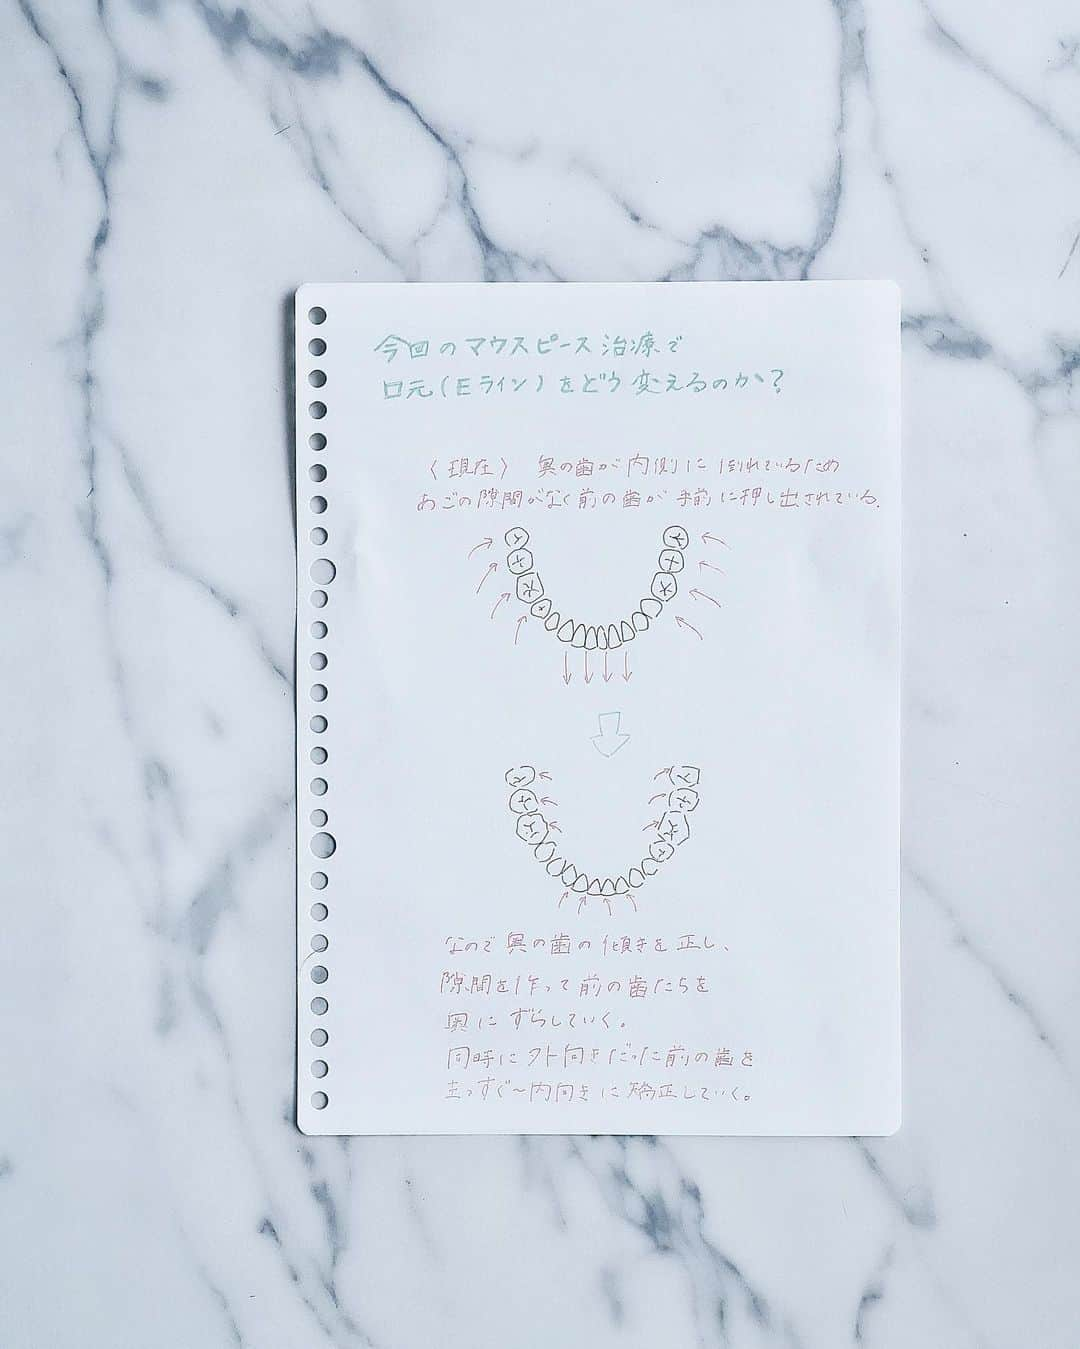 今回のマウスピース治療で
口元(Eライン)をどう変えるのか?
〈現在〉 奥の歯が内側に倒れているため
あごの隙間がなく前の歯が手前に押し出されている.
なので奥の歯の傾きを正し、
隙間を作って前の歯たちを
奥にずらしていく。
同時に外向きだった前の歯を
まっすぐ〜内向きに矯正していく。